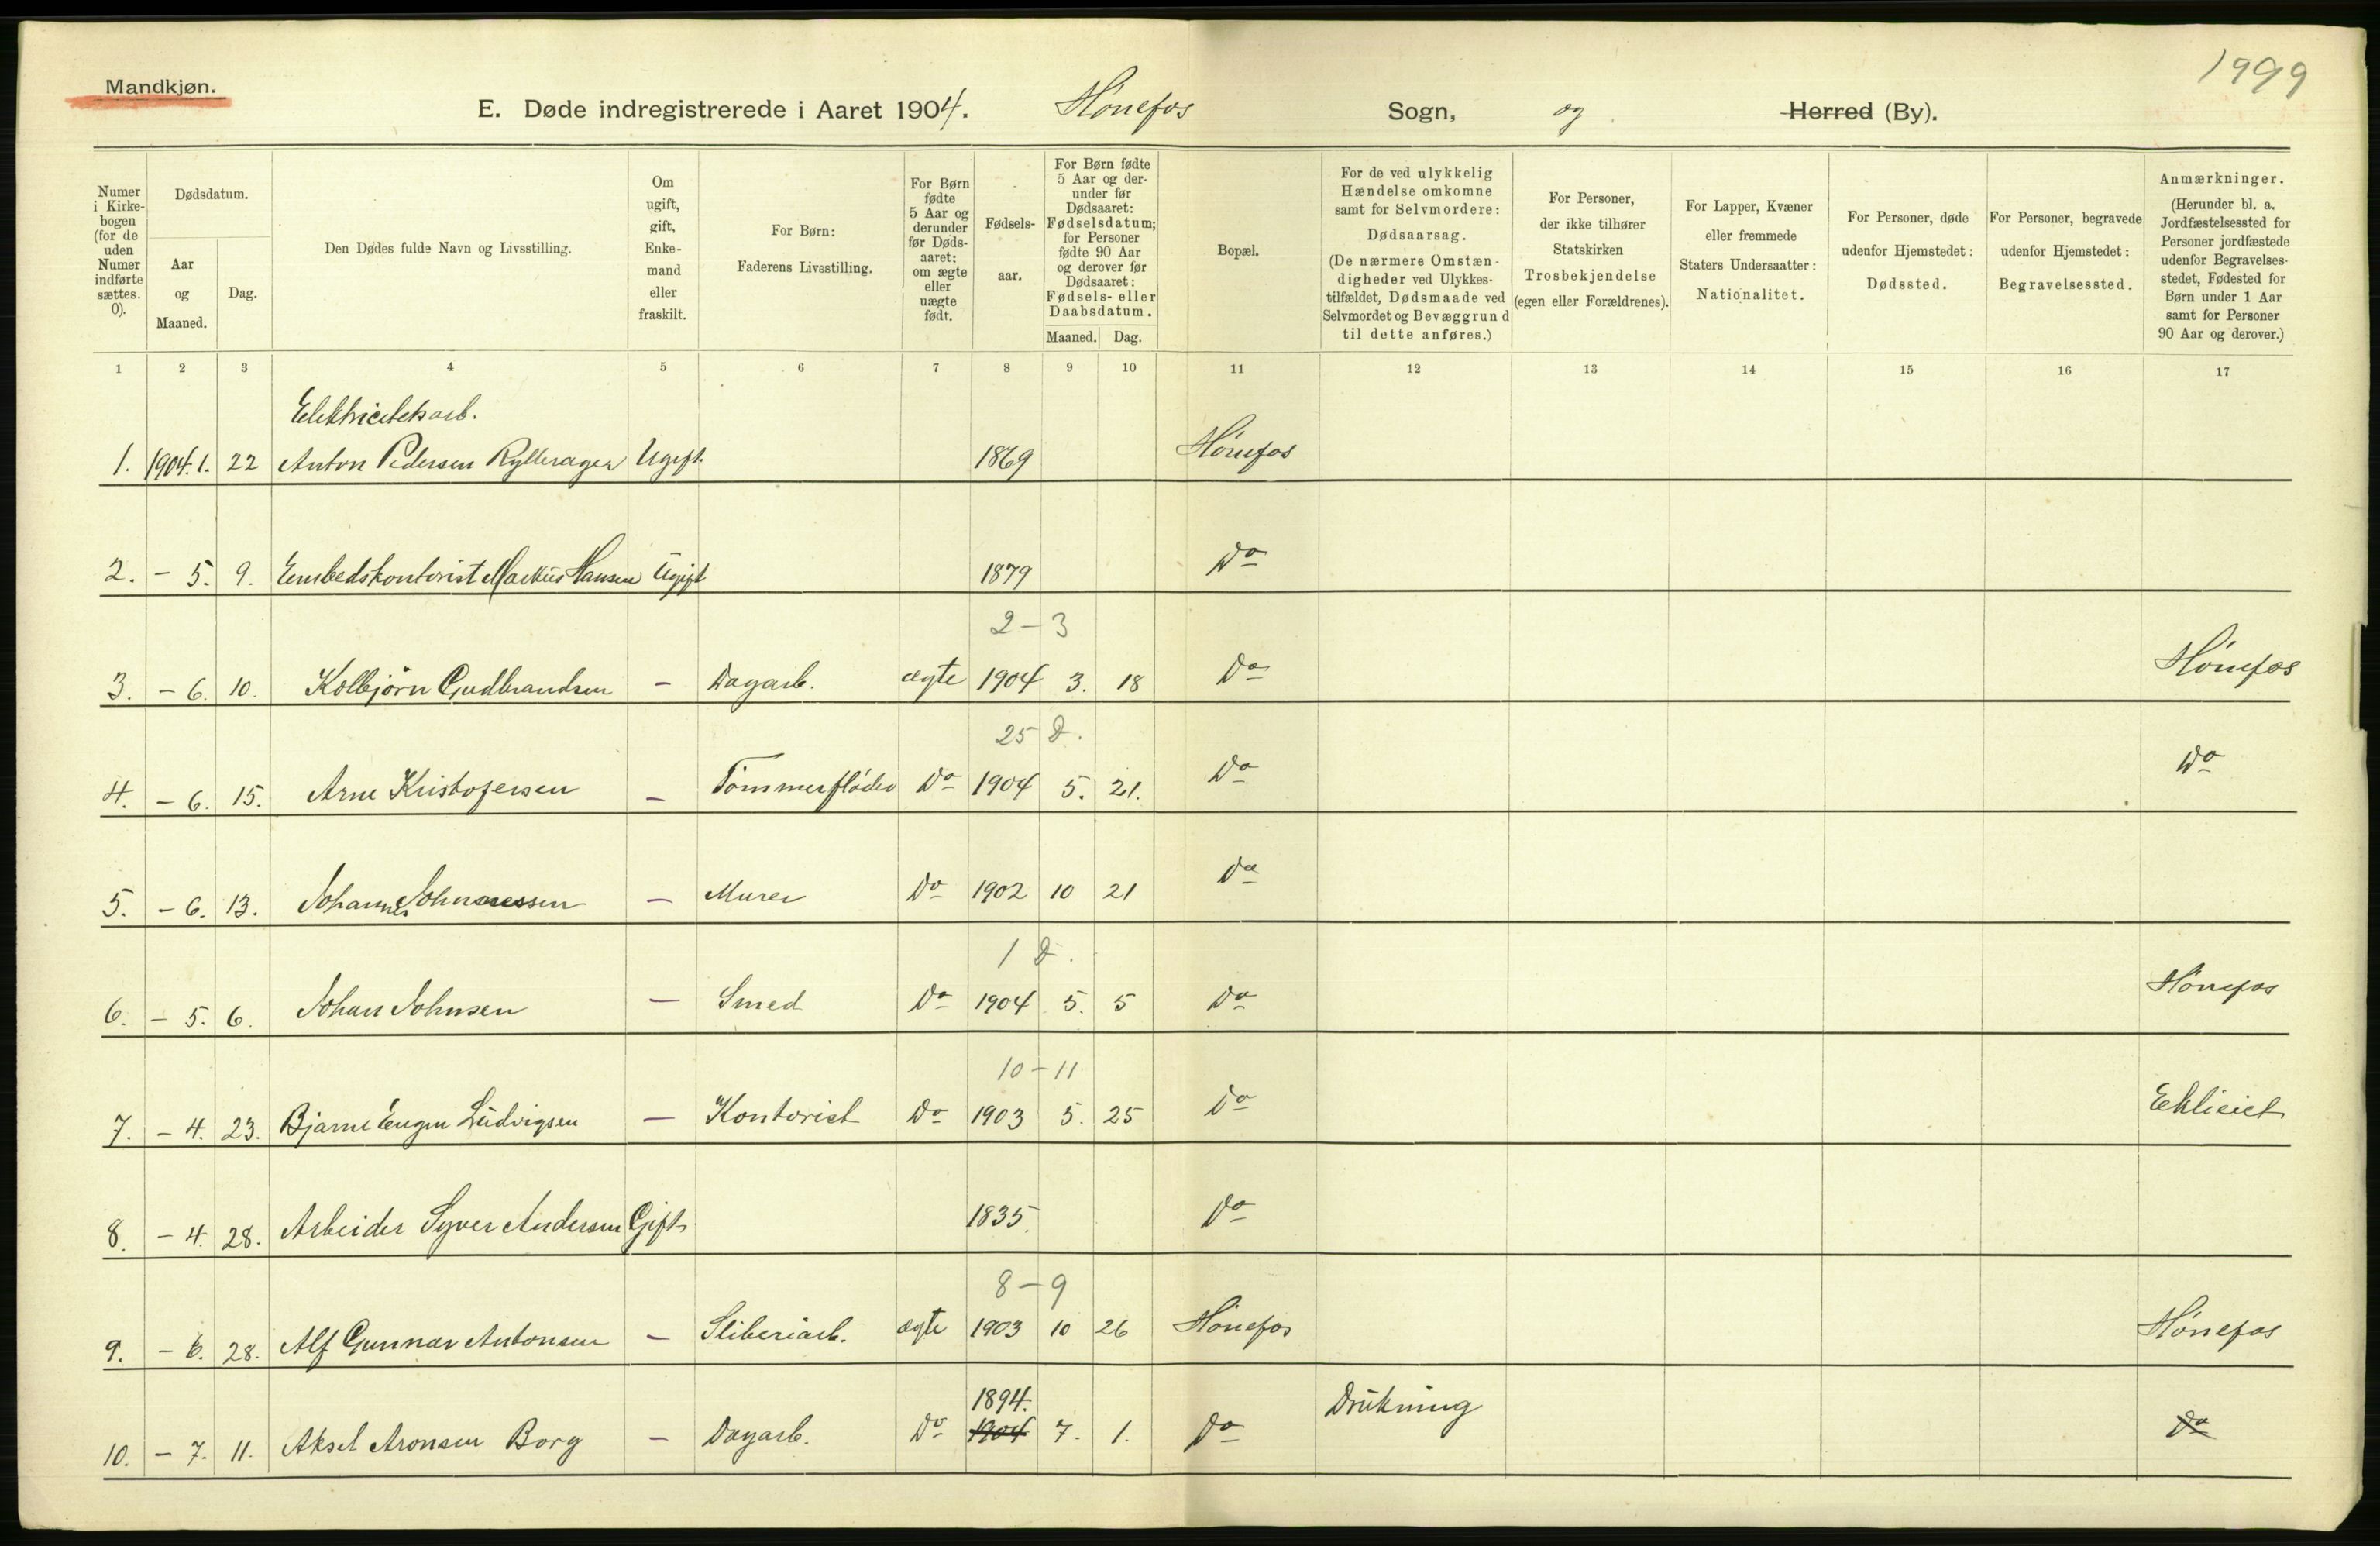 1999
Mandkjøn.
E. Døde indregistrerede i Aaret 1904. Hønefos Sogn, og Herred (By).
Numer i Kirke- bogen (for de uden Numer indførte sættes. 0).
Dødsdatum.
Aar og Maaned.
Dag.
Den Dødes fulde Navn og Livsstilling.
Om ugift, gift, Enke- mand eller fraskilt.
For Børn: Faderens Livsstilling.
For Børn fødte 5 Aar og derunder før Døds- aaret: om ægte eller uægte født.
Fødsels- aar.
For Børn fødte 5 Aar og der- under før Dødsaaret: Fødselsdatum; for Personer fødte 90 Aar og derover før Dødsaaret: Fødsels- eller Daabsdatum.
Maaned. Dag.
Bopæl.
For de ved ulykkelig Hændelse omkomne samt for Selvmordere: Dødsaarsag. (De nærmere Omstæn- digheder ved Ulykkes- tilfældet, Dødsmaade ved Selvmordet og Bevæggrund til dette anføres.)
For Personer, der ikke tilhører Statskirken Trosbekjendelse (egen eller Forældrenes).
For Lapper, Kvæner eller fremmede Staters Undersaatter: Nationalitet.
For Personer, døde udenfor Hjemstedet: Dødssted.
For Personer, begravede udenfor Hjemstedet: Begravelsessted.
Anmærkninger. (Herunder bl. a. Jordfæstelsessted for Personer jordfæstede udenfor Begravelses- stedet, Fødested for Børn under 1 Aar samt for Personer 90 Aar og derover.)
1 2 3 4 5 6 7 8 9 10 11 12 13 14 15 16 17
Elektricitetsarb.
1. 1904. 1. 22 Anton Pedersen Ugift 1869 Hønefos
2. - 5. 9. Embedskontorist Markus Hansen Ugift 1879 Do
2-3
3. - 6. 10. Kolbjørn Gudbrandsen - Dagarb. ægte 1904 3. 18 Do Hønefos
25 D.
4. - 6. 15. Arne Kristofersen - Tømmerfløder Do 1904 5. 21. Do Do
5. - 6. 13. Johannes Johannessen - Murer Do 1902 10 21 Do
1 D.
6. - 5. 6. Johan Johnsen - Smed Do 1904 5. 5 Do Hønefos
10-11
7. - 4. 23. Bjarne Eugen Ludvigsen - Kontorist Do 1903 5. 25 Do
8. - 4. 28. Arbeider Syver Andersen Gift 1835. Do
8-9
9. - 6. 28. Alf Gunnar Antonsen - Sliberiarb. ægte 1903 10 26 Hønefos Hønefos
1894.
10. - 7. 11. Aksel Aronsen Borg - Dagarb. Do 1904 7. 1. Do Drukning Do